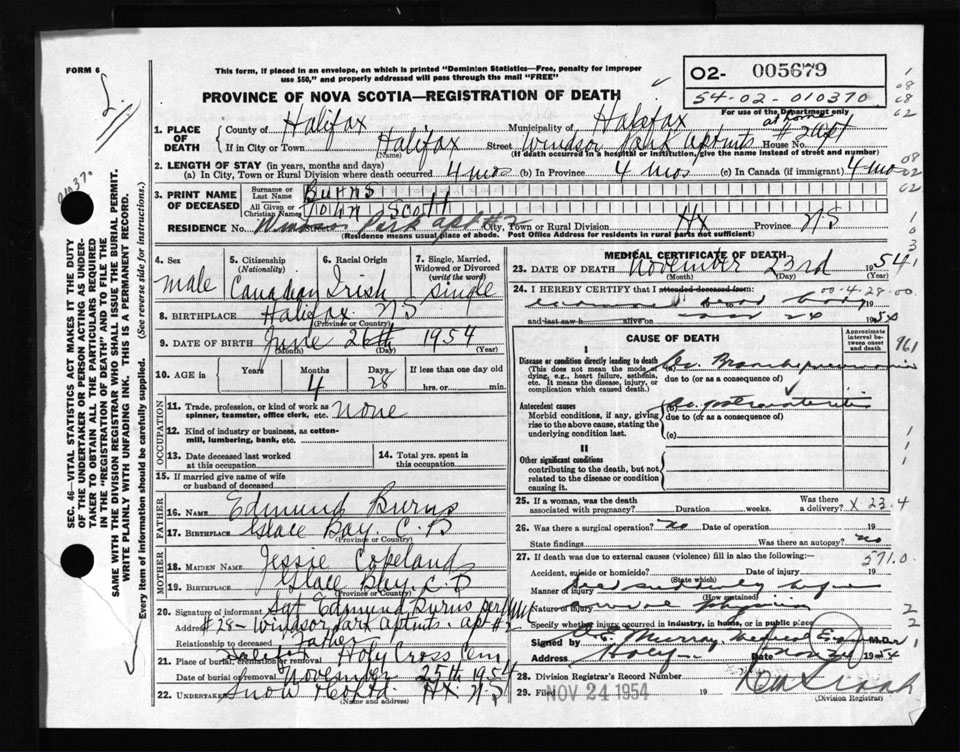 FORM 6
This form, if placed in an envelope, on which is printed "Dominion Statistics—Free, penalty for improper
use $50," and properly addressed will pass through the mail "FREE"
O2- 005679
54-02-010370
For use of the Department only
PROVINCE OF NOVA SCOTIA—REGISTRATION OF DEATH
1. PLACE OF DEATH
County of Halifax Municipality of Halifax at home
If in City or Town Halifax (Name) Street Windsor Park aptmts House No. #2 apt
(If death occurred in a hospital or institution, give the name instead of street and number)
2. LENGTH OF STAY (in years, months and days)
(a) In City, Town or Rural Division where death occurred 4 mos (b) In Province 4 mos (c) In Canada (if immigrant) 4 mo
3. PRINT NAME OF DECEASED
Surname or Last Name Burns
All Given or Christian Names John Scott
RESIDENCE No. Windsor Park apt #2 City, Town or Rural Division Hx Province N S
(Residence means usual place of abode. Post Office Address for residents in rural parts not sufficient)
4. Sex male
5. Citizenship (Nationality) Canadian
6. Racial Origin Irish
7. Single, Married, Widowed or Divorced (write the word) single
8. BIRTHPLACE Halifax NS
(Province or Country)
9. DATE OF BIRTH June 26th 1954
(Month) (Day) (Year)
10. AGE in Years Months 4 Days 28 If less than one day old hrs. or min.
OCCUPATION
11. Trade, profession, or kind of work as spinner, teamster, office clerk, etc. none
12. Kind of industry or business, as cotton-mill, lumbering, bank, etc.
13. Date deceased last worked at this occupation
14. Total yrs. spent in this occupation
15. If married give name of wife or husband of deceased
FATHER
16. NAME Edmund Burns
17. BIRTHPLACE Glace Bay, C.B
(Province or Country)
MOTHER
18. MAIDEN NAME Jessie Copeland
19. BIRTHPLACE Glace Bay, C.B
(Province or Country)
20. Signature of informant Sgt Edmund Burns per
Address #28- Windsor Park aptmts. apt #2
Relationship to deceased father
21. Place of burial, cremation or removal Halifax Holy Cross Cem
Date of burial or removal November 25th 1954
22. UNDERTAKER Snow Hx. N.S
(Name and address)
MEDICAL CERTIFICATE OF DEATH
23. DATE OF DEATH November 23rd 1954
(Month) (Day)
24. I HEREBY CERTIFY that I attended deceased from: 00-4-28-00
examined dead body 19
and last saw h alive on nov 24 1954
CAUSE OF DEATH
Approximate interval between onset and death
I
Disease or condition directly leading to death
(This does not mean the mode of dying, e.g., heart failure, asthenia, etc. It means the disease, injury, or complication which caused death.)
(a) Ac. Bronchopneumonia
due to (or as a consequence of)
Antecedent causes
Morbid conditions, if any, giving rise to the above cause, stating the underlying condition last.
(b) Ac. gastroenteritis
due to (or as a consequence of)
(c)
II
Other significant conditions
contributing to the death, but not related to the disease or condition causing it.
25. If a woman, was the death associated with pregnancy? Duration weeks. Was there a delivery? X 23.4
26. Was there a surgical operation? no Date of operation 19
State findings Was there an autopsy? no
27. If death was due to external causes (violence) fill in also the following:— 571.0
Accident, suicide or homicide? Date of injury 19
(State which)
Manner of injury Died suddenly
(How sustained)
Nature of injury
Specify whether injury occurred in industry, in home, or in public place
Signed by Murray, Medical Ex M.D.
Address Date Nov 24 1954
28. Division Registrar's Record Number
29. Filed NOV 24 1954 19
(Division Registrar)
SEC. 46—VITAL STATISTICS ACT MAKES IT THE DUTY
OF THE UNDERTAKER OR PERSON ACTING AS UNDER-
TAKER TO OBTAIN ALL THE PARTICULARS REQUIRED
IN THE "REGISTRATION OF DEATH" AND TO FILE THE
SAME WITH THE DIVISION REGISTRAR WHO SHALL ISSUE THE BURIAL PERMIT.
WRITE PLAINLY WITH UNFADING INK. THIS IS A PERMANENT RECORD.
Every item of information should be carefully supplied. (See reverse side for instructions.)